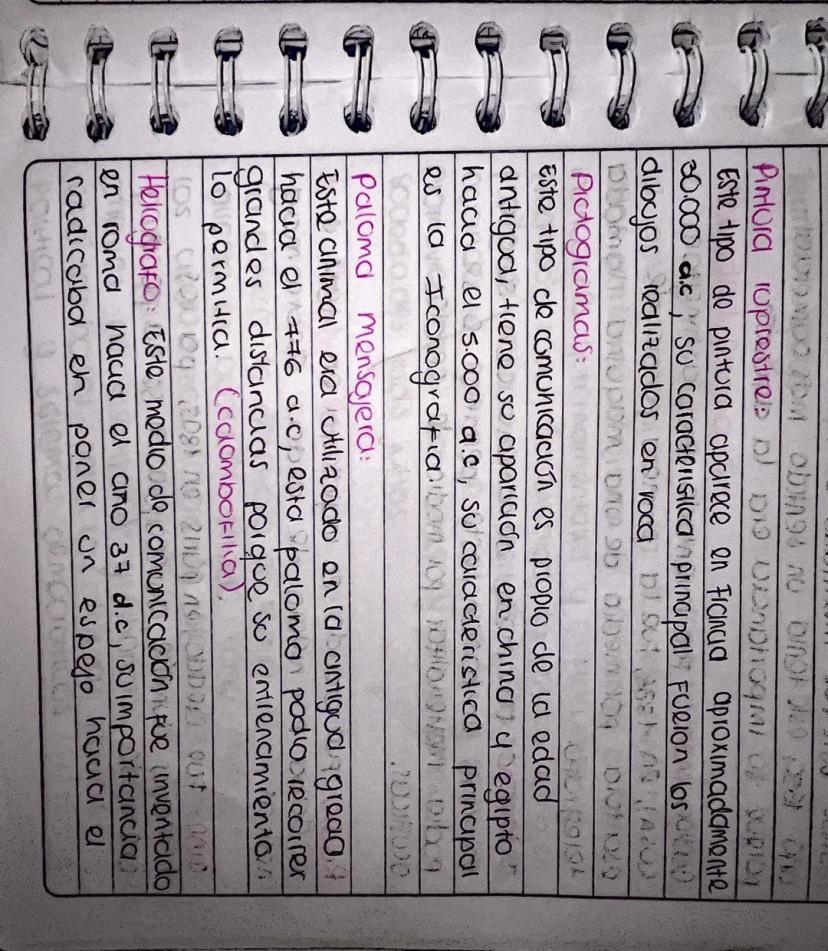 Pintura ruprestre:
Este tipo de pintura aparece en Francia aproximadamente
30.000 a.c, su característica principal fueron los
dibujos realizados en roca
Pictogramas:
Este tipo de comunicación es propio de la edad
antigua, tiene su aparición en china y egipto
hacia el 5.000 a.c, su característica principal
es la Iconografia.
Paloma mensajera:
Este animal era utilizado en la antigua grecia
hacia el 776 a.c, esta paloma podia recorrer
grandes distancias porque su entrenamiento
lo permitia. (colombofilia).
Heliografo: Este medio de comunicación fue inventado
en roma hacia el año 37 d.c, su importancia
radicaba en poner un espejo hacia el